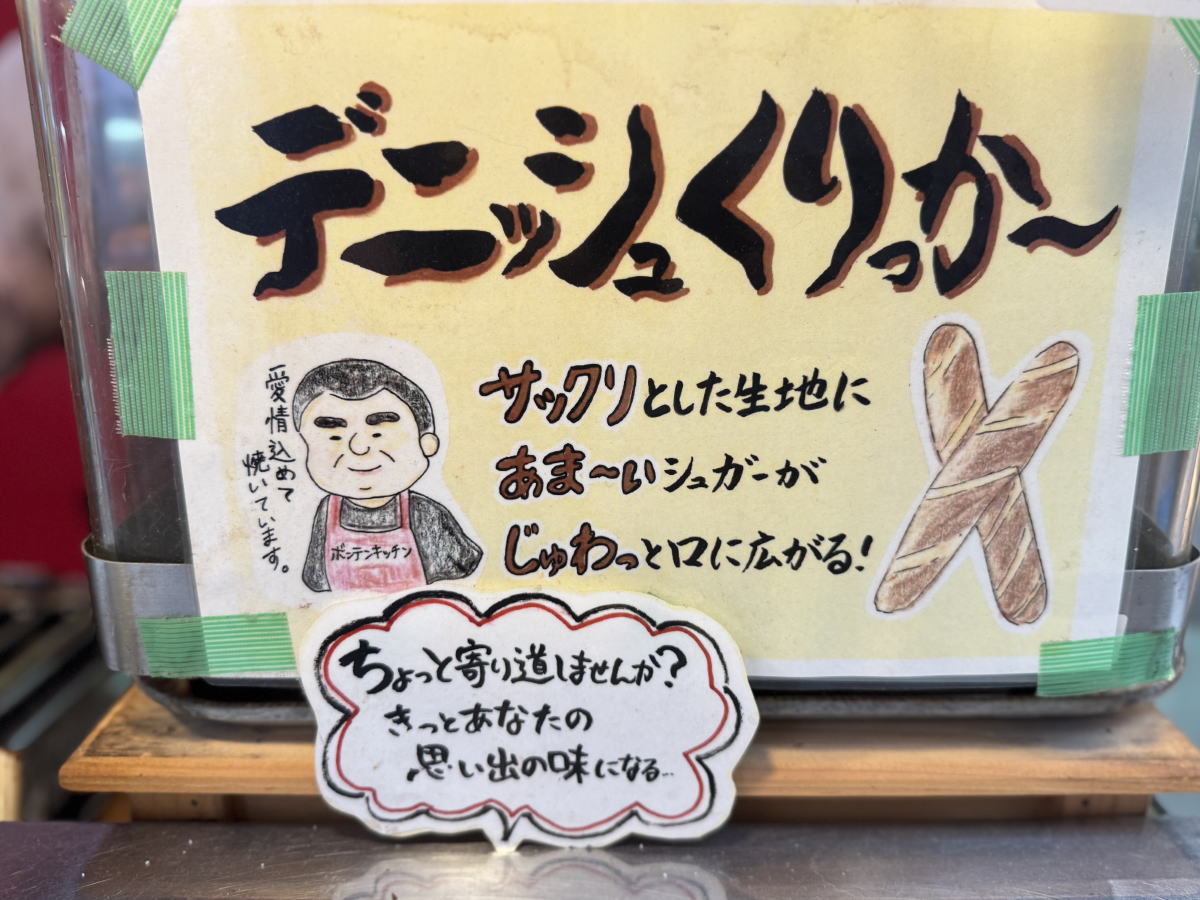 デニッシュくりっか〜
愛情込めて
焼いています。
ボンテンキッチン
サックリとした生地に
あま〜いシュガーが
じゅわっと口に広がる!
ちょっと寄り道しませんか?
きっとあなたの
思い出の味になる…